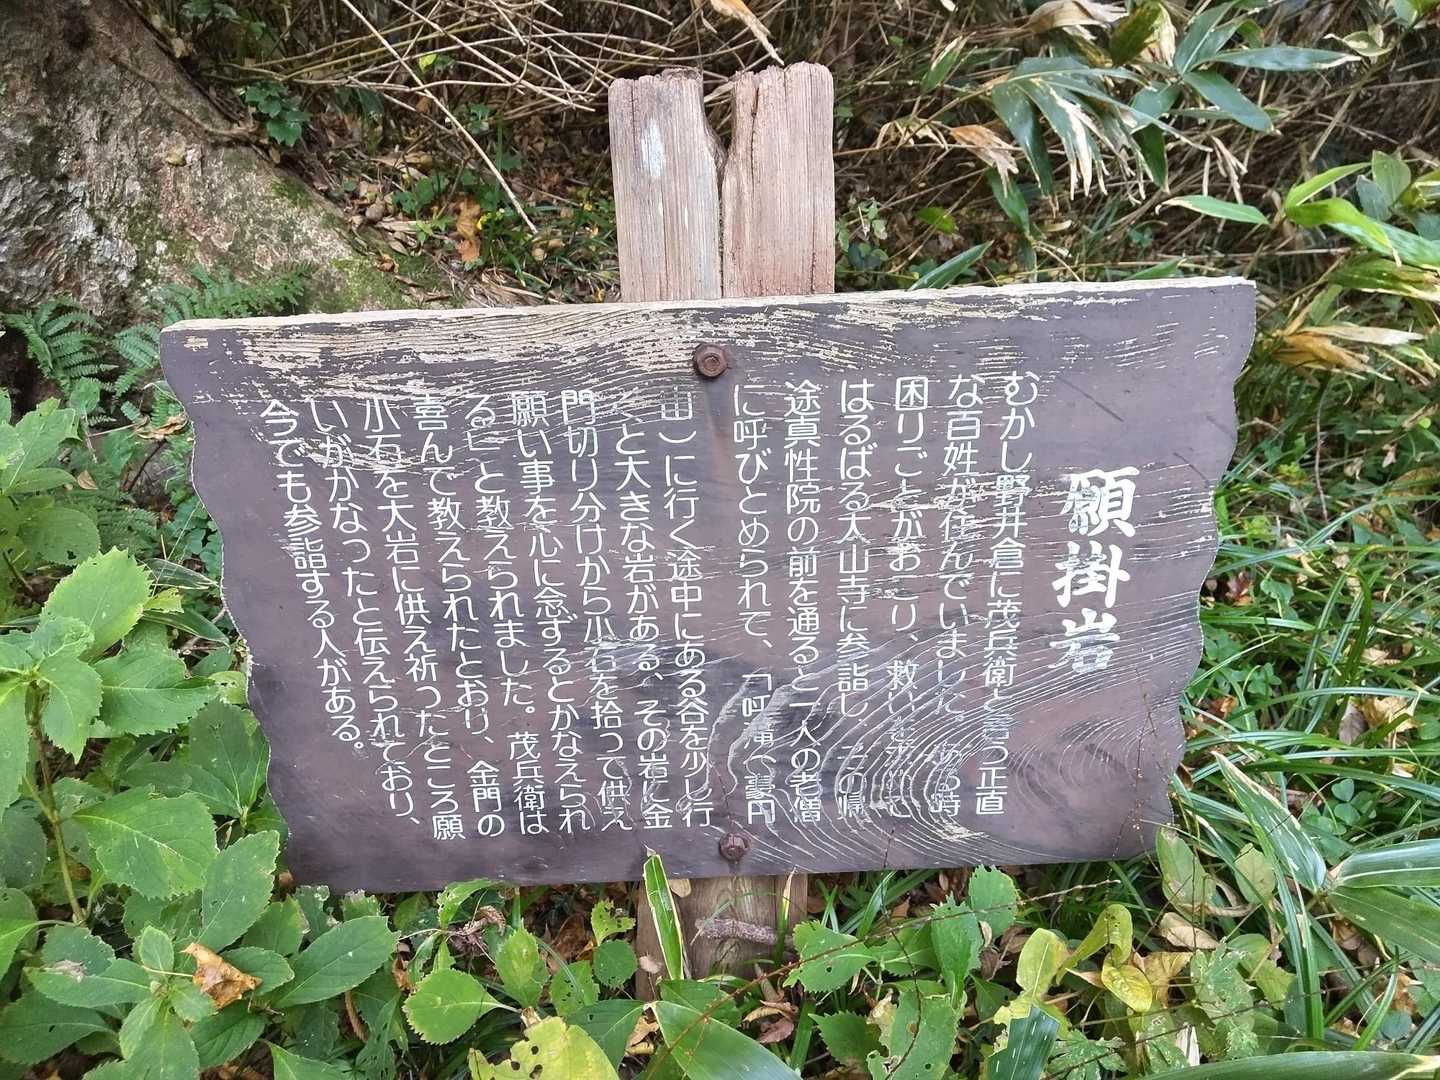 願掛岩
むかし野井倉に茂兵衛と言う正直
な百姓が住んでいました。ある時
困りごとがおこり、救いを
はるばる太山寺に参詣し、この帰
途真性院の前を通ると一人の老僧
に呼びとめられて、「呼滝へ
山）に行く途中にある谷を少し行
くと大きな岩がある、その岩に金
門切り分けから小石を拾って供え
願い事を心に念ずるとかなえられ
る」と教えられました。茂兵衛は
喜んで教えられたとおり、金門の
小石を大岩に供え祈ったところ願
いがかなったと伝えられており、
今でも参詣する人がある。